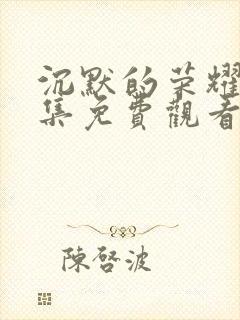 沉默的荣耀
集免費觀看
陳啓波